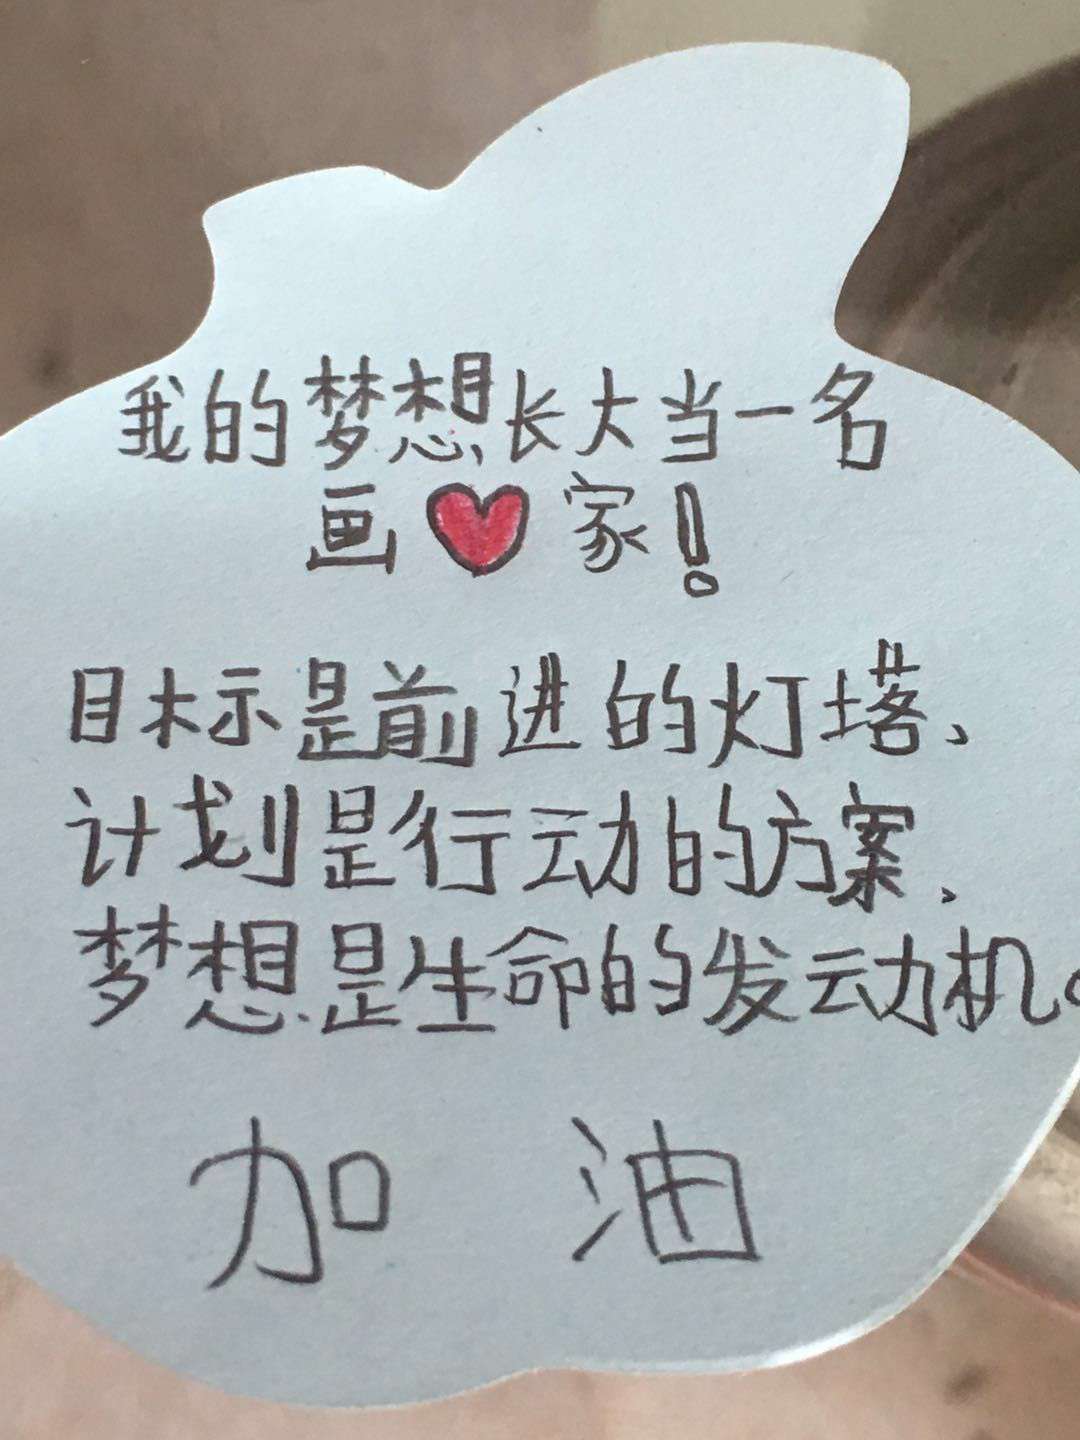 我的梦想长大当一名
画家!
目标是前进的灯塔、
计划是行动的方案、
梦想是生命的发动机。
加油